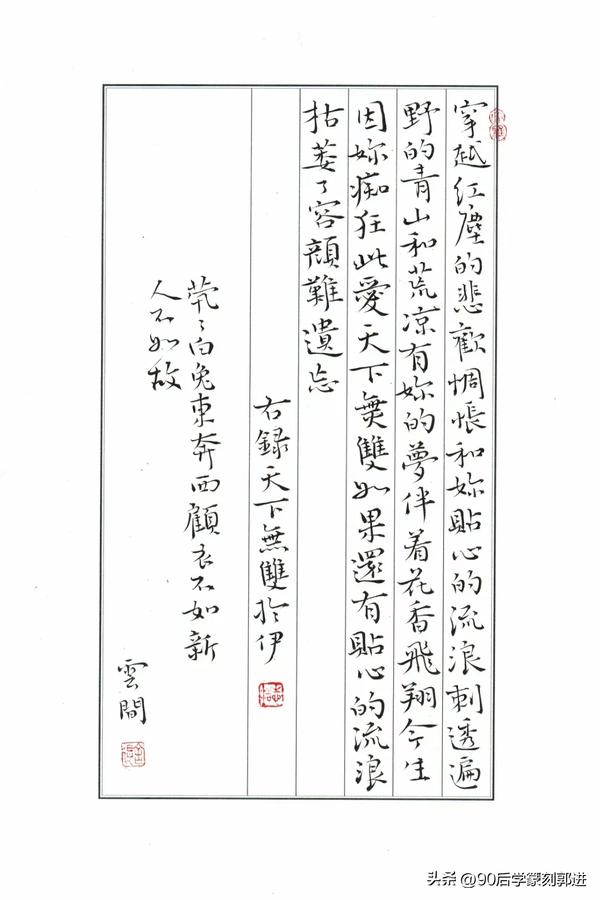 穿越红塵的悲歡惆悵和妳貼心的流浪刺透遍
野的青山和荒凉有妳的夢伴着花香飛翔今生
因妳痴狂此愛天下無雙如果還有貼心的流浪
枯萎了容顔難遺忘
右録天下無雙於伊
茕〻白兔東奔西顧衣不如新
人不如故
雲間
头条 @90后学篆刻郭进